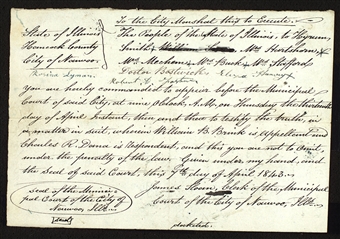 To the City Marshal this to Execute.
State of Illinois
Hancock County
City of Nauvoo,
The People of the State of Illinois, to Hyrum
Smith, Mrs Hartshorne,
Mrs Mechone, Mrs Buck, Mrs Stafford
Doctor Bostwick
Thorine Lyman,
Robert D. Foster
You are hereby commanded to appear before the Municipal
Court of said city, at nine o'clock, A.M. on Thursday the thirteenth
day of April Instant, then and there to testify the truth, in
a matter in suit, wherein William B. Brink, is Appellant and
Charles R. Dana is Respondent, and this you are not to omit,
under the penalty of the law. Given under my hand, and
the seal of said Court, this 7th day of April 1843.
James Sloan, Clerk of the Municipal
Court of the City of Nauvoo, Ills.
Seal of the Munici-
pal Court of the City of
Nauvoo, Ills.